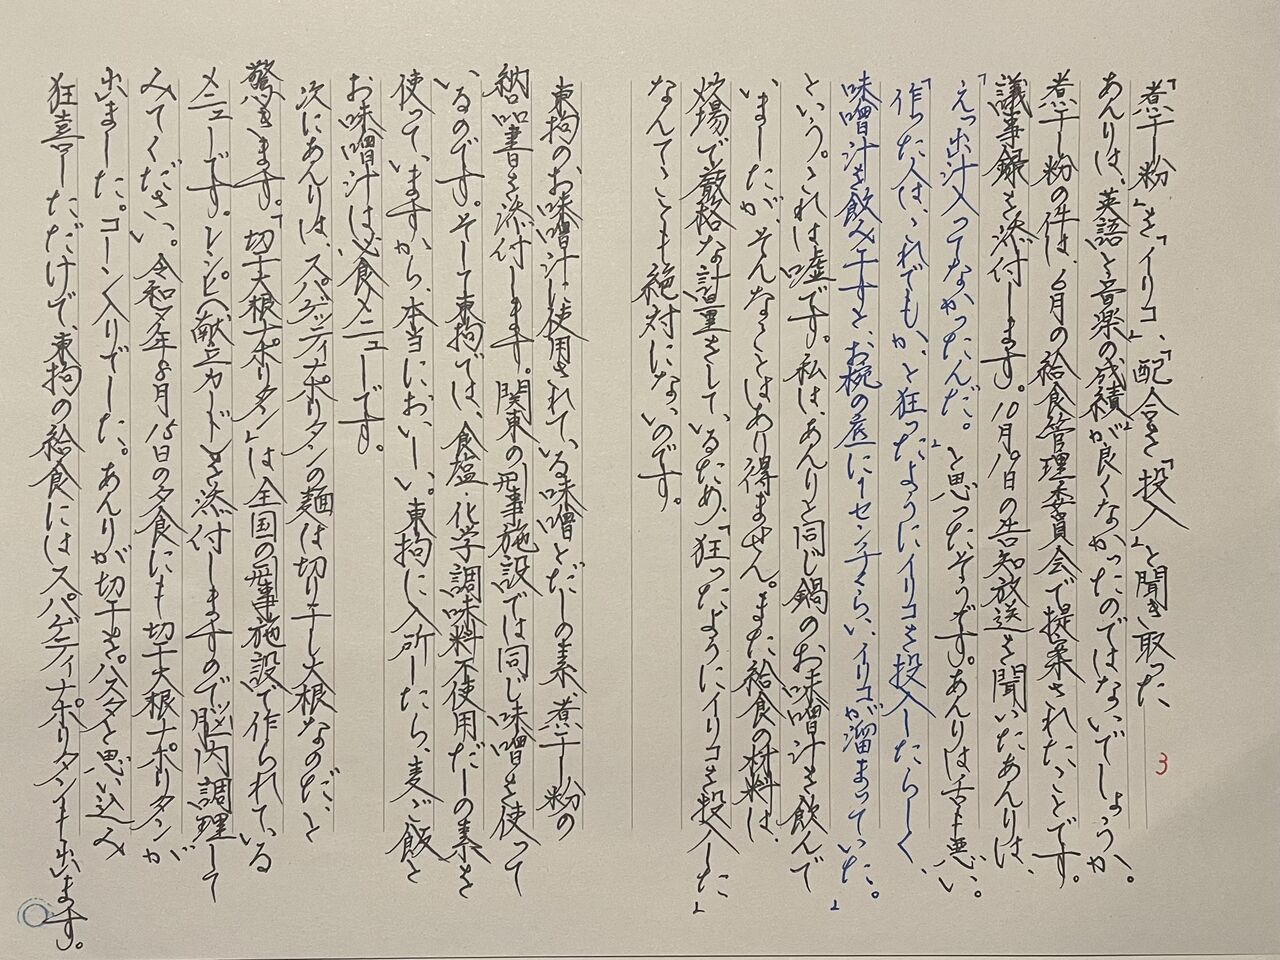 3
「煮干し粉」を「イリコ」、「配合」を「投入」と聞き取った
あんりは、英語と音楽の成績が良くなかったのではないでしょうか。
煮干し粉の件は、6月の給食管理委員会で提案されたことです。
議事録を添付します。10月9日の告知放送を聞いたあんりは、
「えっ出汁入ってなかったんだ。」と思ったそうです。あんりは舌も悪い。
「作った人は、これでもか、と狂ったようにイリコを投入したらしく、
味噌汁を飲み干すと、お椀の底に1センチくらい、イリコが溜まっていた。」
という。これは嘘です。私は、あんりと同じ鍋のお味噌汁を飲んで
いましたが、そんなことはあり得ません。また給食の材料は、
炊場で厳格な計量をしているため、「狂ったようにイリコを投入した」
なんてことも絶対にないのです。
東拘の、お味噌汁に使用されている味噌とだしの素、煮干し粉の
納品書を添付します。関東の刑事施設では同じ味噌を使って
いるのです。そして東拘では、食塩・化学調味料不使用だしの素を
使っていますから、本当においしい。東拘に入所したら、麦ご飯と
お味噌汁は必食メニューです。
次にあんりは、スパゲッティナポリタンの麺は切り干し大根なのだ、と
驚きます。「切干大根ナポリタン」は全国の刑事施設で作られている
メニューです。レシピへ献立カードを添付しますので脳内調理して
みてください。令和3年8月15日の夕食にも切干大根ナポリタンが
出ました。コーン入りでした。あんりが切干を、パスタと思い込み
狂喜しただけで、東拘の給食にはスパゲティナポリタンも出ます。